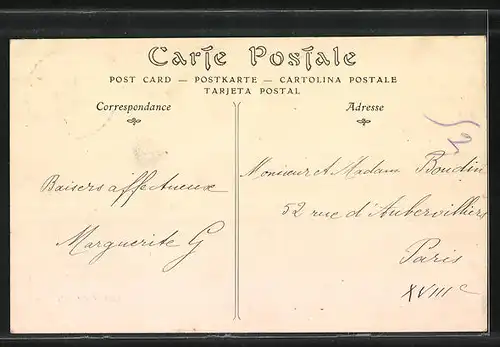 Carte Postale
POST CARD — POSTKARTE — CARTOLINA POSTALE
TARJETA POSTAL
Correspondance
Adresse
52
Baisers affectueux
Marguerite G
Monsieur et Madam Boudin
52 rue d'Aubervilliers
Paris
XVIIIe